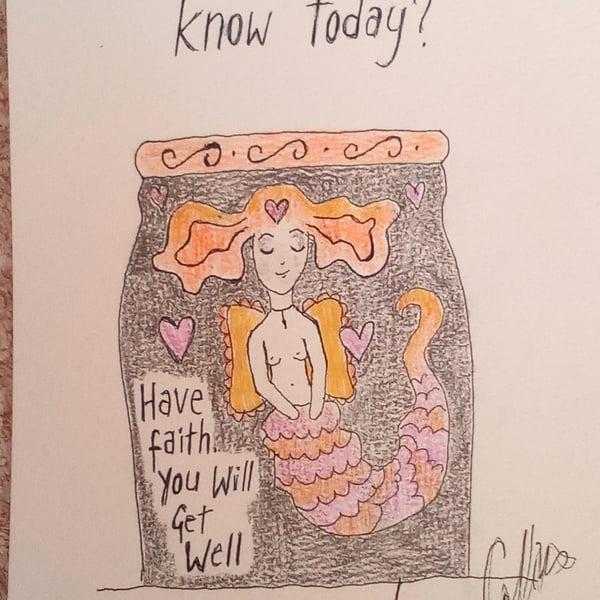 know today?
Have
faith.
You Will
Get
Well